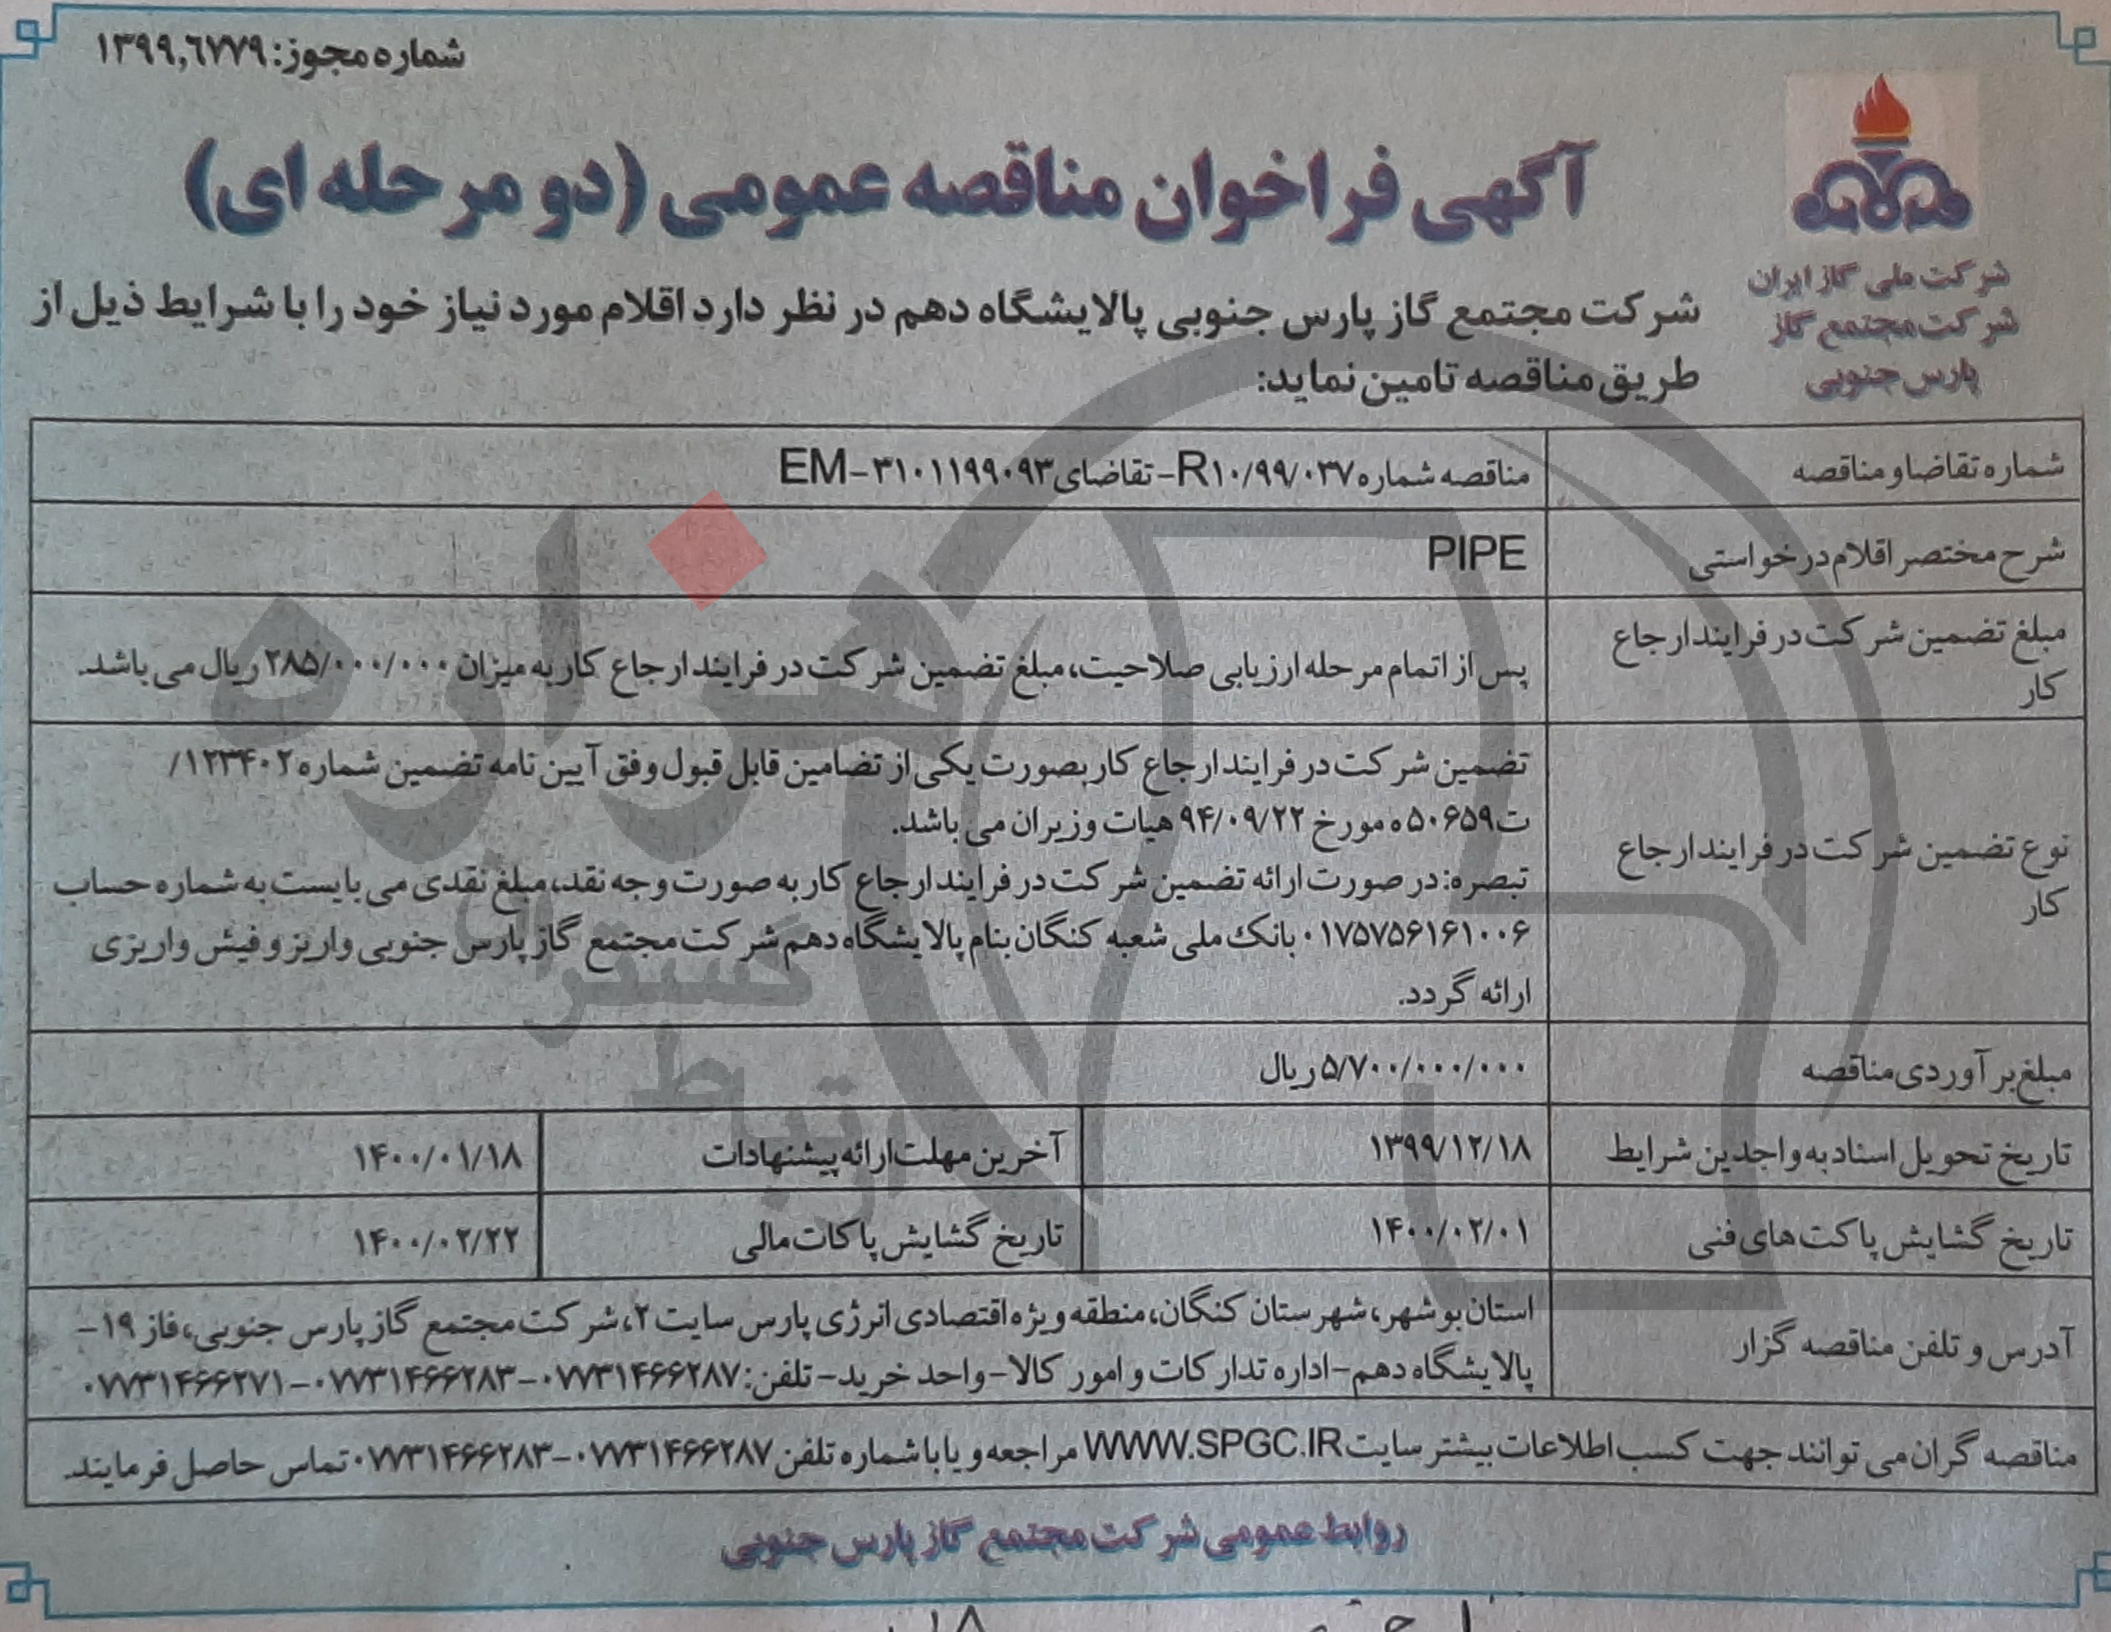 شماره مجوز: ۱۳۹۹,۶۷۷۹
آگهی فراخوان مناقصه عمومی (دو مرحله ای)
شرکت ملی گاز ایران
شرکت مجتمع گاز
پارس جنوبی
شرکت مجتمع گاز پارس جنوبی پالایشگاه دهم در نظر دارد اقلام مورد نیاز خود را با شرایط ذیل از
طریق مناقصه تامین نماید:
شماره تقاضا و مناقصه
مناقصه شماره R۱۰/۹۹/۰۳۷- تقاضای EM-۳۱۰۱۱۹۹۰۹۳
شرح مختصر اقلام درخواستی
PIPE
مبلغ تضمین شرکت در فرایند ارجاع
کار
پس از اتمام مرحله ارزیابی صلاحیت، مبلغ تضمین شرکت در فرایند ارجاع کار به میزان ۲۸۵/۰۰۰/۰۰۰ ریال می باشد.
نوع تضمین شرکت در فرایند ارجاع
کار
تضمین شرکت در فرایند ارجاع کار بصورت یکی از تضامین قابل قبول وفق آیین نامه تضمین شماره ۱۲۳۴۰۲/
ت۵۰۶۵۹ه مورخ ۹۴/۰۹/۲۲ هیات وزیران می باشد.
تبصره: در صورت ارائه تضمین شرکت در فرایند ارجاع کار به صورت وجه نقد، مبلغ نقدی می بایست به شماره حساب
۰۱۷۵۷۵۶۱۶۱۰۰۶ بانک ملی شعبه کنگان بنام پالایشگاه دهم شرکت مجتمع گاز پارس جنوبی واریز و فیش واریزی
ارائه گردد.
مبلغ بر آوردی مناقصه
۵/۷۰۰/۰۰۰/۰۰۰ ریال
تاریخ تحویل اسناد به واجدین شرایط
۱۳۹۹/۱۲/۱۸
آخرین مهلت ارائه پیشنهادات
۱۴۰۰/۰۱/۱۸
تاریخ گشایش پاکت های فنی
۱۴۰۰/۰۲/۰۱
تاریخ گشایش پاکات مالی
۱۴۰۰/۰۲/۲۲
آدرس و تلفن مناقصه گزار
استان بوشهر، شهرستان کنگان، منطقه ویژه اقتصادی انرژی پارس سایت ۲، شرکت مجتمع گاز پارس جنوبی، فاز ۱۹-
پالایشگاه دهم- اداره تدارکات و امور کالا- واحد خرید- تلفن: ۰۷۷۳۱۴۶۶۲۸۷-۰۷۷۳۱۴۶۶۲۸۳-۰۷۷۳۱۴۶۶۲۷۱
مناقصه گران می توانند جهت کسب اطلاعات بیشتر سایت WWW.SPGC.IR مراجعه و یا با شماره تلفن ۰۷۷۳۱۴۶۶۲۸۷-۰۷۷۳۱۴۶۶۲۸۳ تماس حاصل فرمایند.
روابط عمومی شرکت مجتمع گاز پارس جنوبی
هزاره
گستران
ارتباط